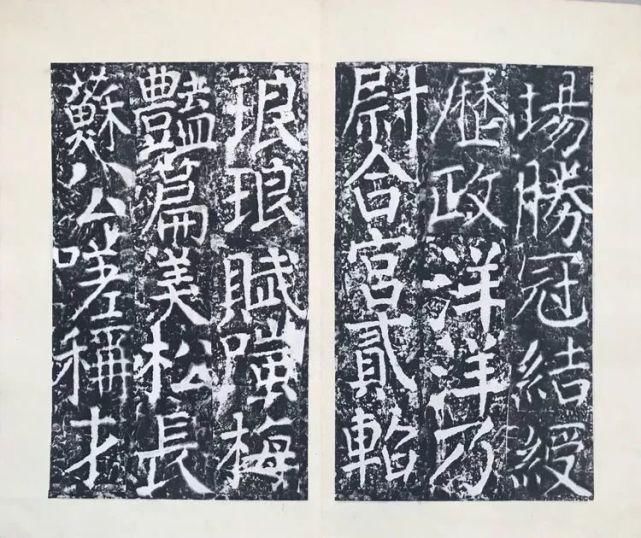 場勝冠結綬
歷政洋洋乃
尉合宮貳軺
琅琅賦嗤梅
豔篇美松長
蘇公嗟稱才